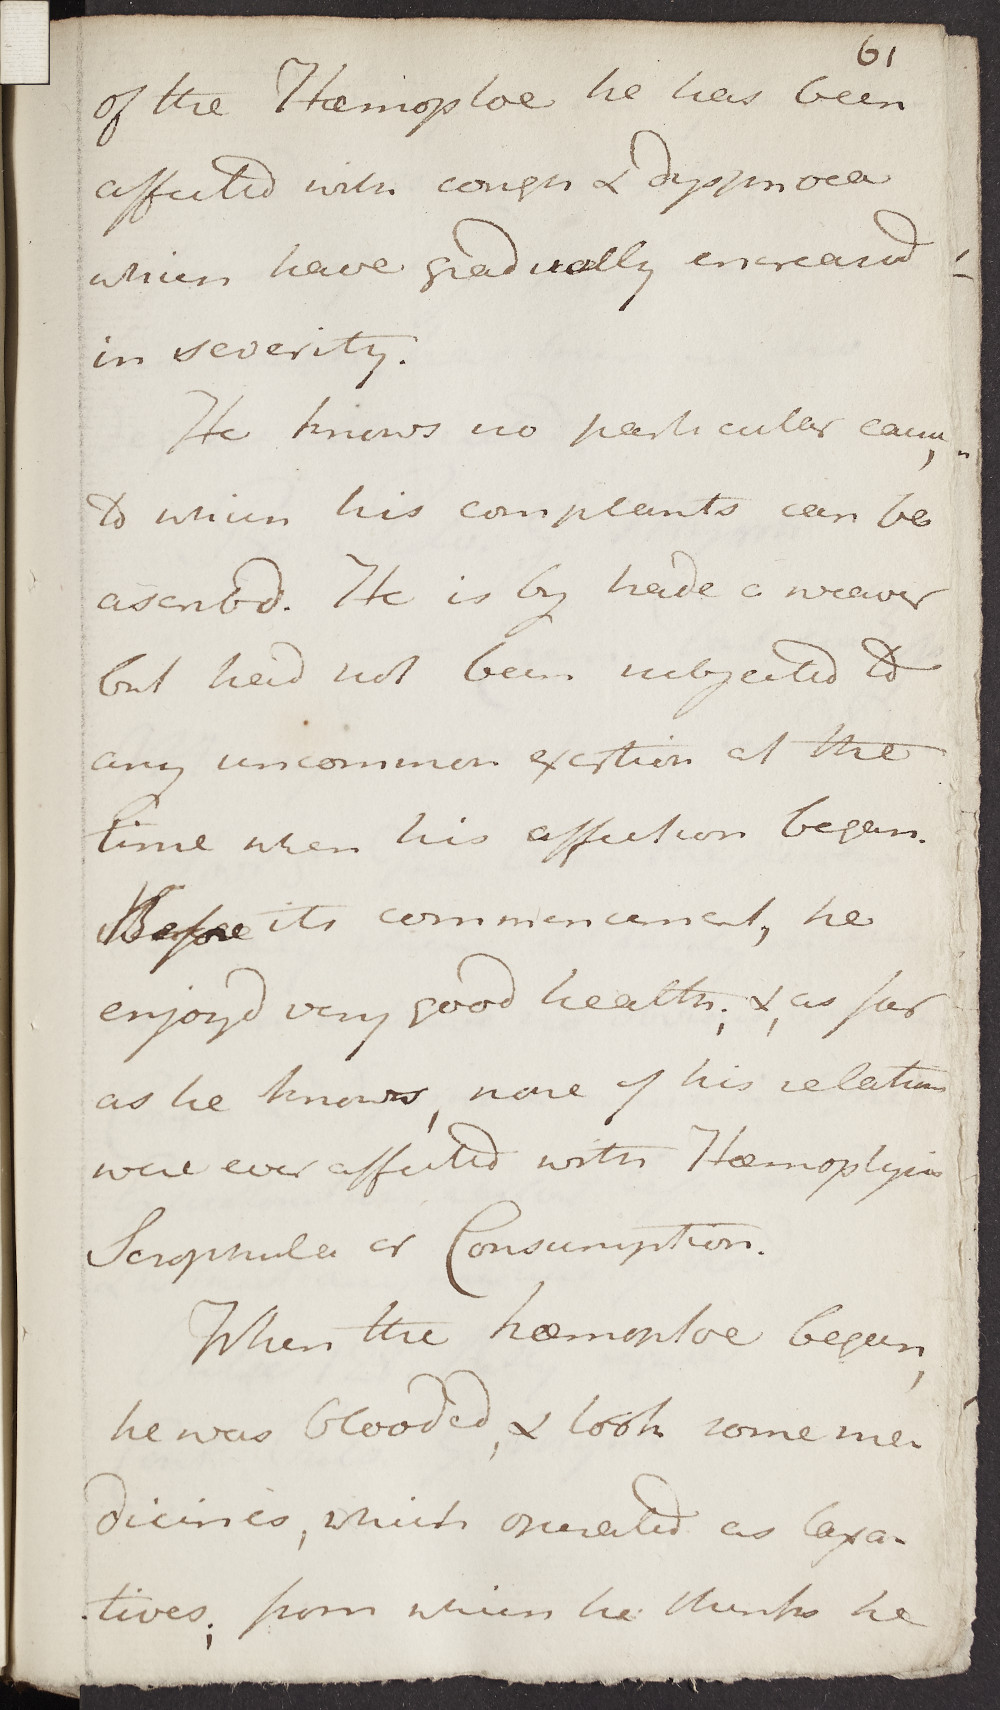 61
of the Hæmoptoe he has been
affected with cough & dyspnoea
which have gradually encreased
in severity.
He knows no particular cause,
to which his complaints can be
ascribd. He is by trade a weaver
but had not been subjected to
any uncommon exertion at the
time when his affection began.
Before its commencement, he
enjoyd very good health; &, as far
as he knows, none of his relations
were ever affected with Hæmoptysis
Scrophula or Consumption.
When the hæmoptoe began,
he was blooded, & took some me-
dicines, which operated as laxa-
tives; from which he thinks he